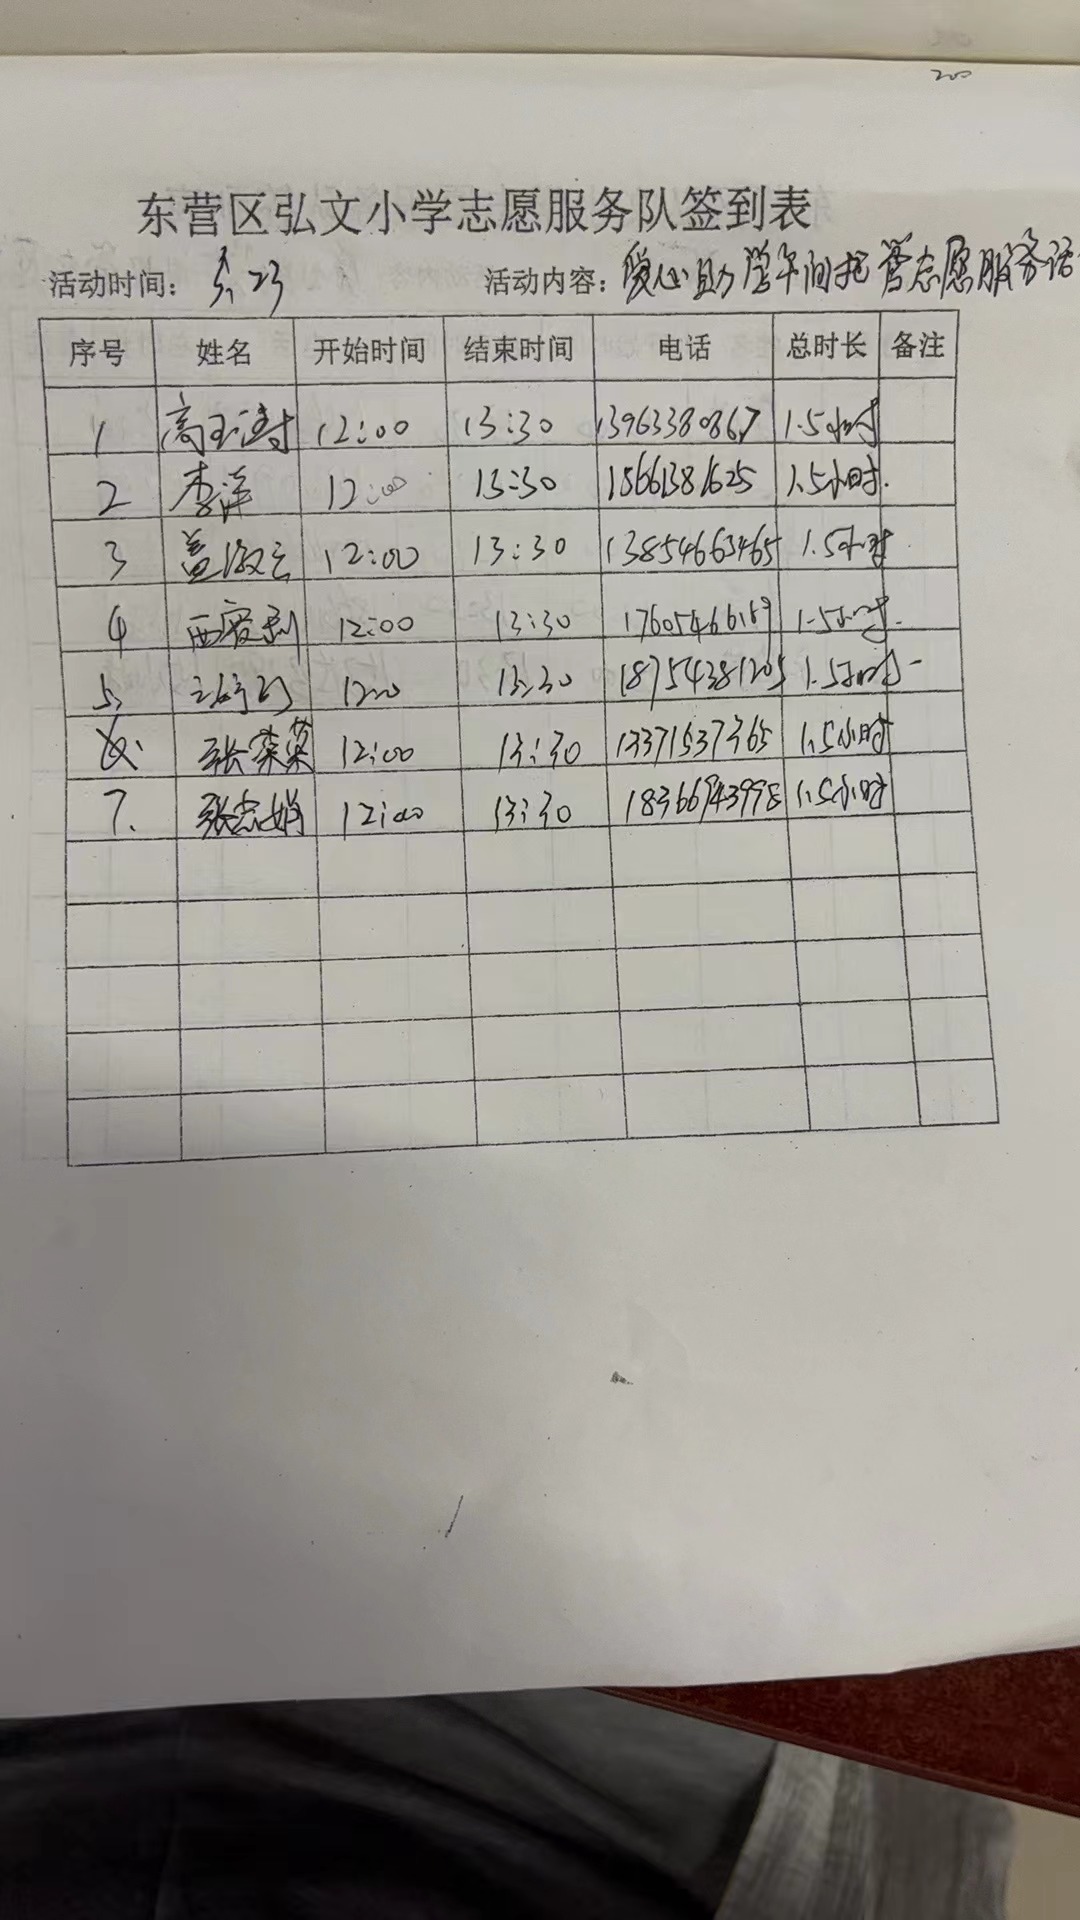 200
东营区弘文小学志愿服务队签到表
活动时间: 5.23 活动内容: 爱心助学午间托管志愿服务活
序号 姓名 开始时间 结束时间 电话 总时长 备注
1 高玉涛 12:00 13:30 13963380867 1.5小时
2 李洋 12:00 13:30 15661381625 1.5小时.
3 盖 12:00 13:30 13854663465 1.5小时
4 12:00 13:30 17605466169 1.5小时.
5. 12:00 13:30 18754381205 1.5小时
6. 张荣英 12:00 13:30 13371537365 1.5小时
7. 张志娟 12:00 13:30 18366943998 1.5小时